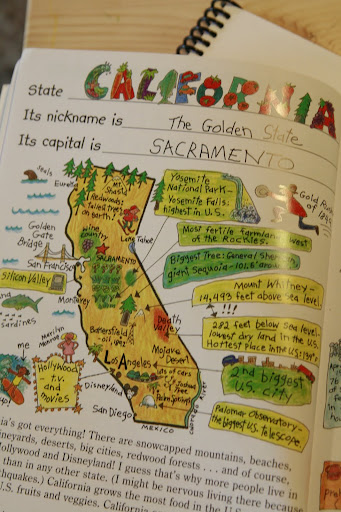 State CALIFORNIA
Its nickname is The Golden State
Its capital is SACRAMENTO
seals
Eureka
Mt. Shasta
Redwoods:
tallest trees
on earth!
Lake Tahoe
Wine
country
SACRAMENTO
Golden
Gate
Bridge
San Francisco
Silicon Valley
Monterey
sardines
Marilyn
Monroe
me
Hollywood
- T.V.
and
movies
Bakersfield
- oil rigs
Death
Valley
Mojave
Desert
Los Angeles
lots of cars
Joshua
Tree
Palm Springs
Disneyland
San Diego
MEXICO
Colorado River
Yosemite
National Park-
Yosemite Falls:
highest in U.S.
Gold Rush
Most fertile farmland west
of the Rockies.
Biggest Tree: General Sherman
giant sequoia - 101.6' around
Mount Whitney-
14,493 feet above sea level
!!!
282 feet below sea level-
lowest dry land in the U.S.
Hottest place in the U.S: 134°
2nd biggest
U.S. CITY
Palomar Observatory-
the biggest U.S. telescope
's got everything! There are snowcapped mountains, beaches,
neyards, deserts, big cities, redwood forests . . . and of course,
ollywood and Disneyland! I guess that's why more people live in
than in any other state. (I might be nervous living there because
thquakes.) California grows the most food in the U.S.
.S. fruits and veggies.